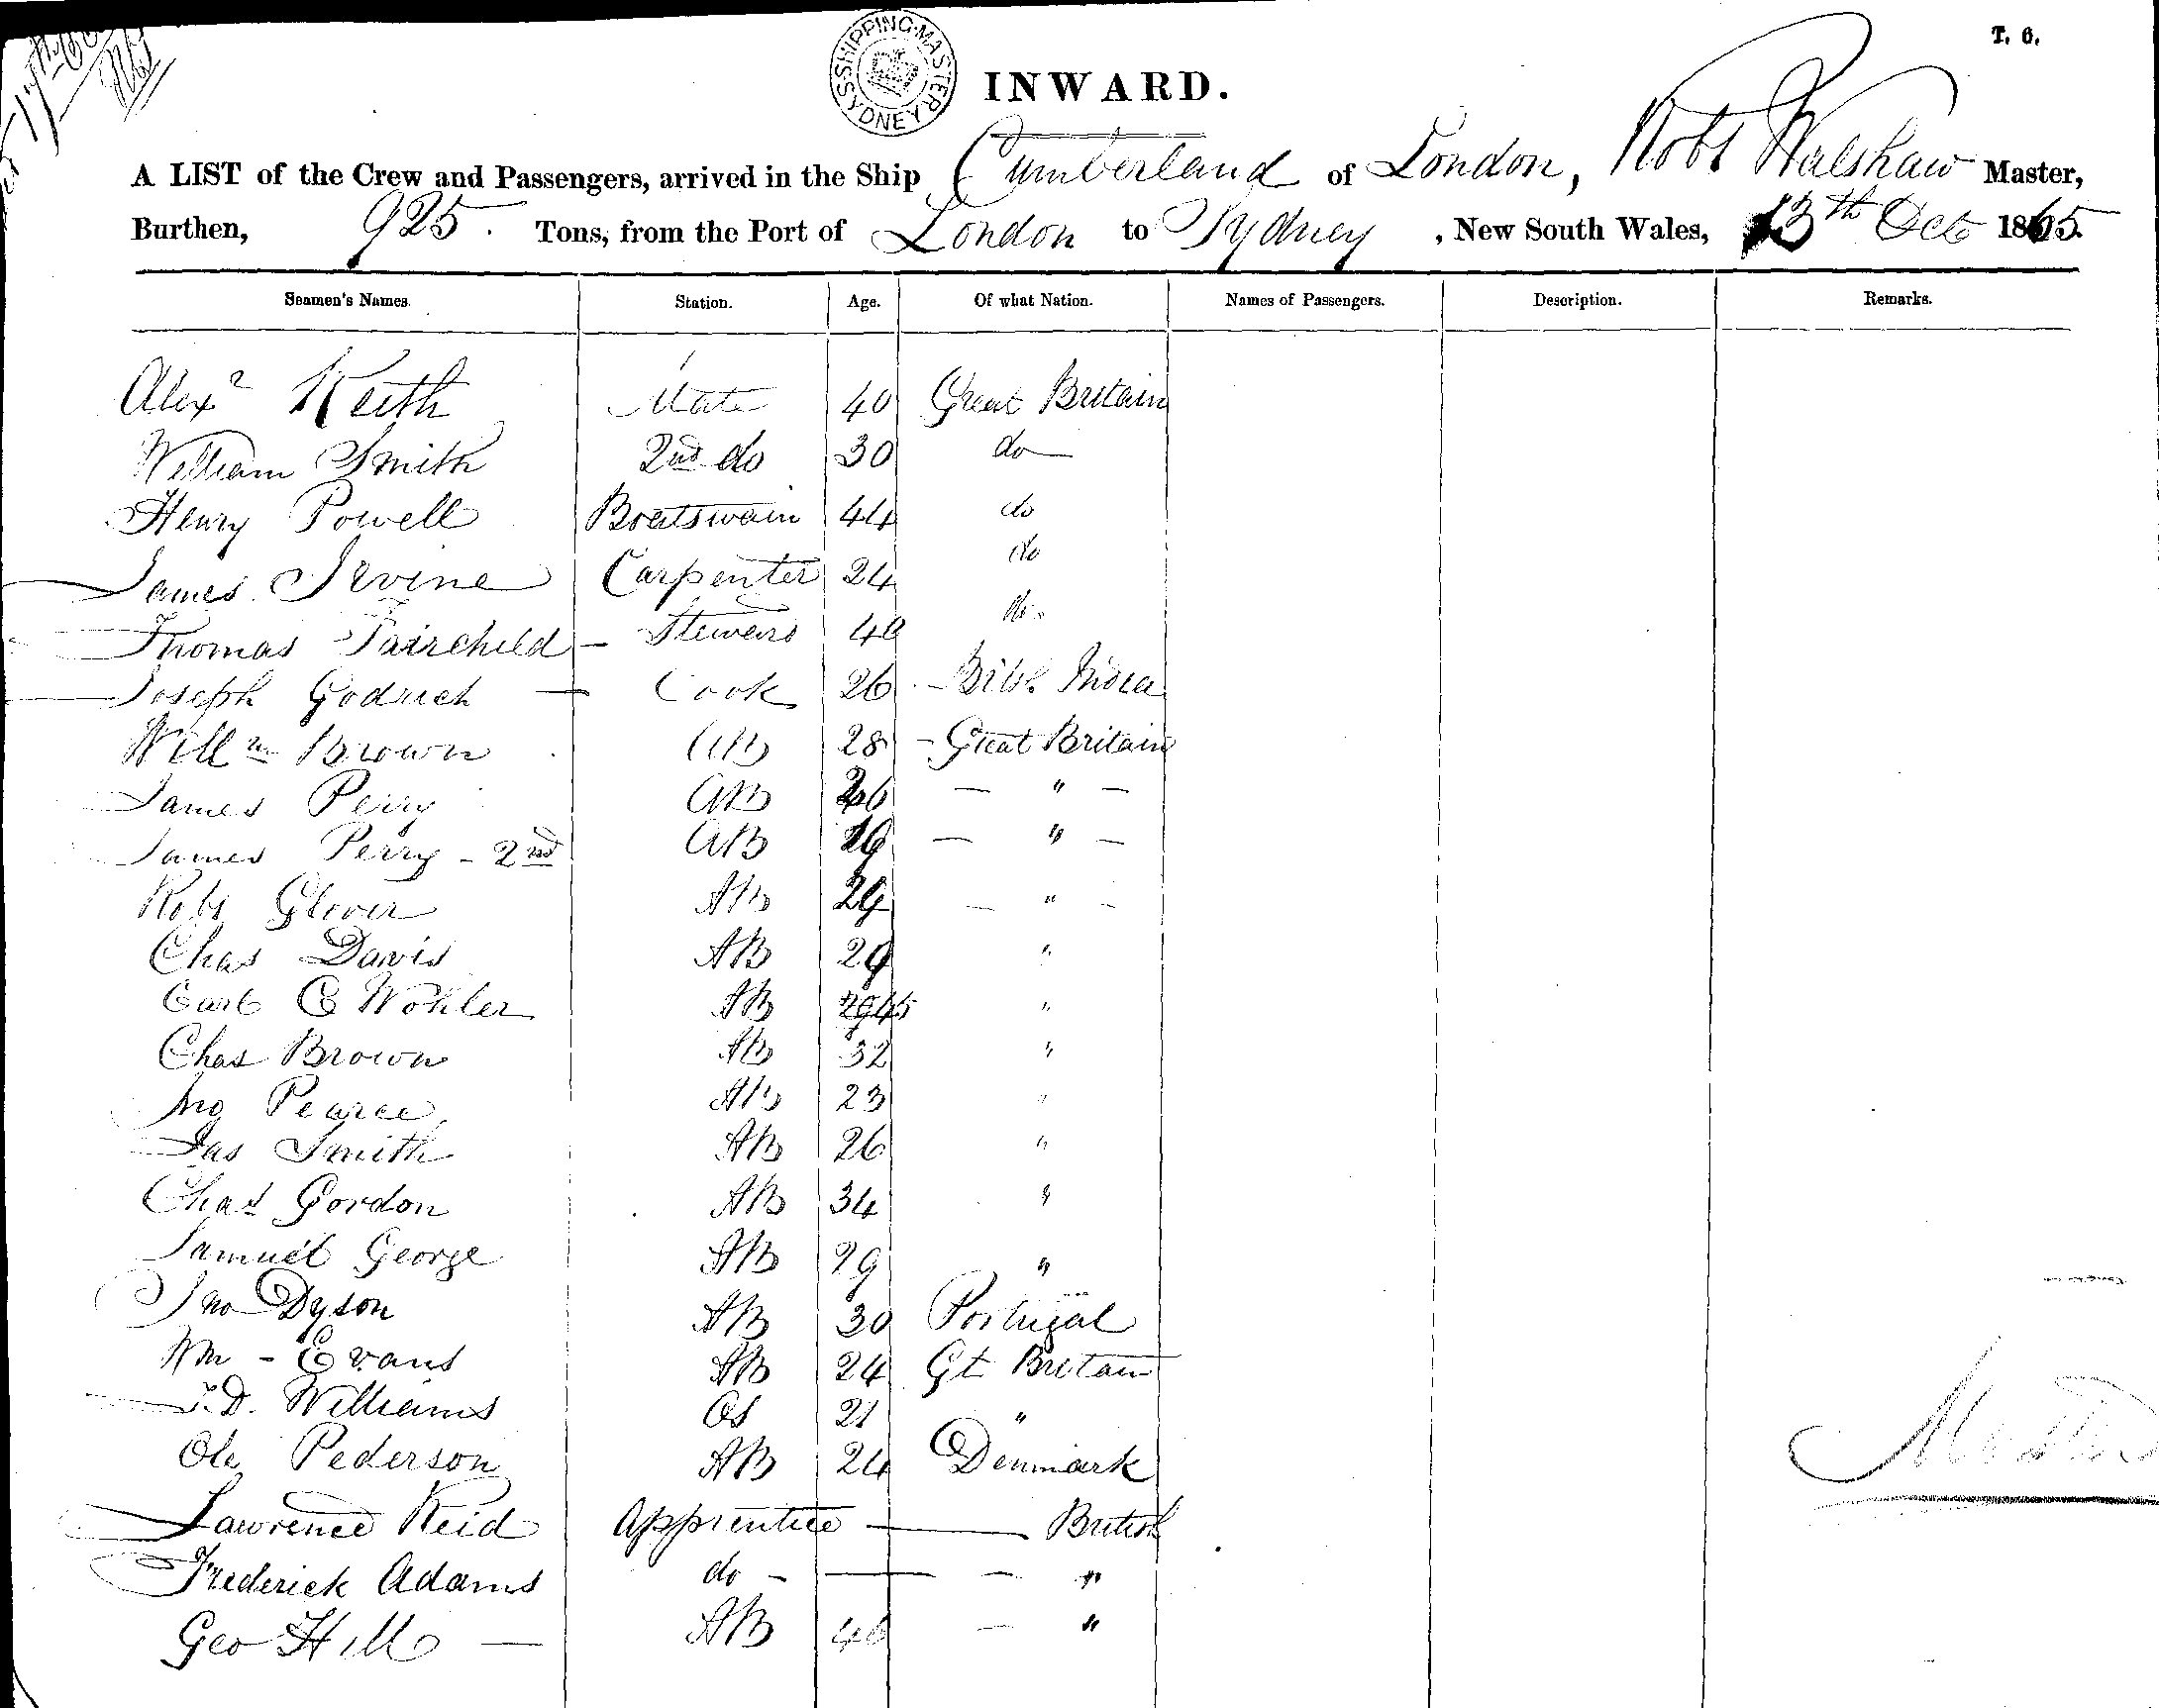 SHIPPING MASTER SYDNEY
T. 6.
INWARD.
A LIST of the Crew and Passengers, arrived in the Ship Cumberland of London, Robt Walshaw Master,
Burthen, 925 Tons, from the Port of London to Sydney, New South Wales, 13th Oct 1865.
Seamen's Names. Station. Age. Of what Nation. Names of Passengers. Description. Remarks.
Alexr Keith Mate 40 Great Britain
William Smith 2nd do 30 do
Henry Powell Boatswain 44 do
James Irvine Carpenter 24 do
Thomas Fairchild - Steward 40 do
Joseph Godrich Cook 26 - Brith India
Willm Brown AB 28 - Great Britain
James Perry AB 26 — " —
James Perry - 2nd AB — " —
Robt Glover AB 29 — " -
Chas Davis AB 29 "
Carl C Wohler AB 45 "
Chas Brown AB 32 "
Jno Pearce AB 23 "
Jas Smith AB 26 "
Chas Gordon AB 34 "
Samuel George AB 29 "
Jno Dyson AB 30 Portugal
Wm - Evans AB 24 Gt Britain
J.D. Williams OS 21 "
Ole Pederson AB 24 Denmark
Lawrence Reid Apprentice — British
Frederick Adams do - — — "
Geo Hill — AB 46 — "
Master